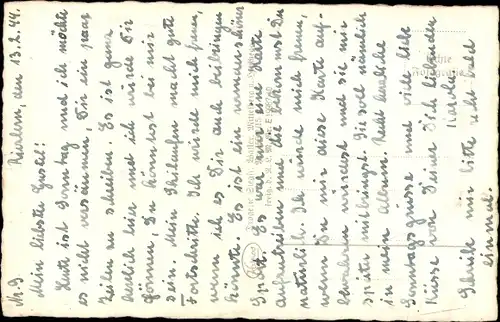 Nr. 9. Riezlern, den 13.2.44.
Mein liebster Gustl!
Heute ist Sonntag und ich möchte
es nicht versäumen, Dir ein paar
Zeilen zu schreiben. Es ist ganz
herrlich hier und ich würde Dir
gönnen, Du könntest bei mir
sein. Mein Skilaufen macht gute
Fortschritte. Ich würde mich freuen,
wenn ich es Dir auch beibringen
könnte. Es ist ein wunderschöner
Sport. Es war nur eine Karte
aufzutreiben und die bekommst Du
natürlich. Ich würde mich freuen,
wenn Du mir diese Karte auf-
bewahren würdest und sie mir
später mitbringst. Sie soll nämlich
in mein Album. Recht herzliche
Sonntagsgrüsse und viele liebe
Küsse von Deiner Dich liebenden
Schreibe mir bitte recht bald
einmal.